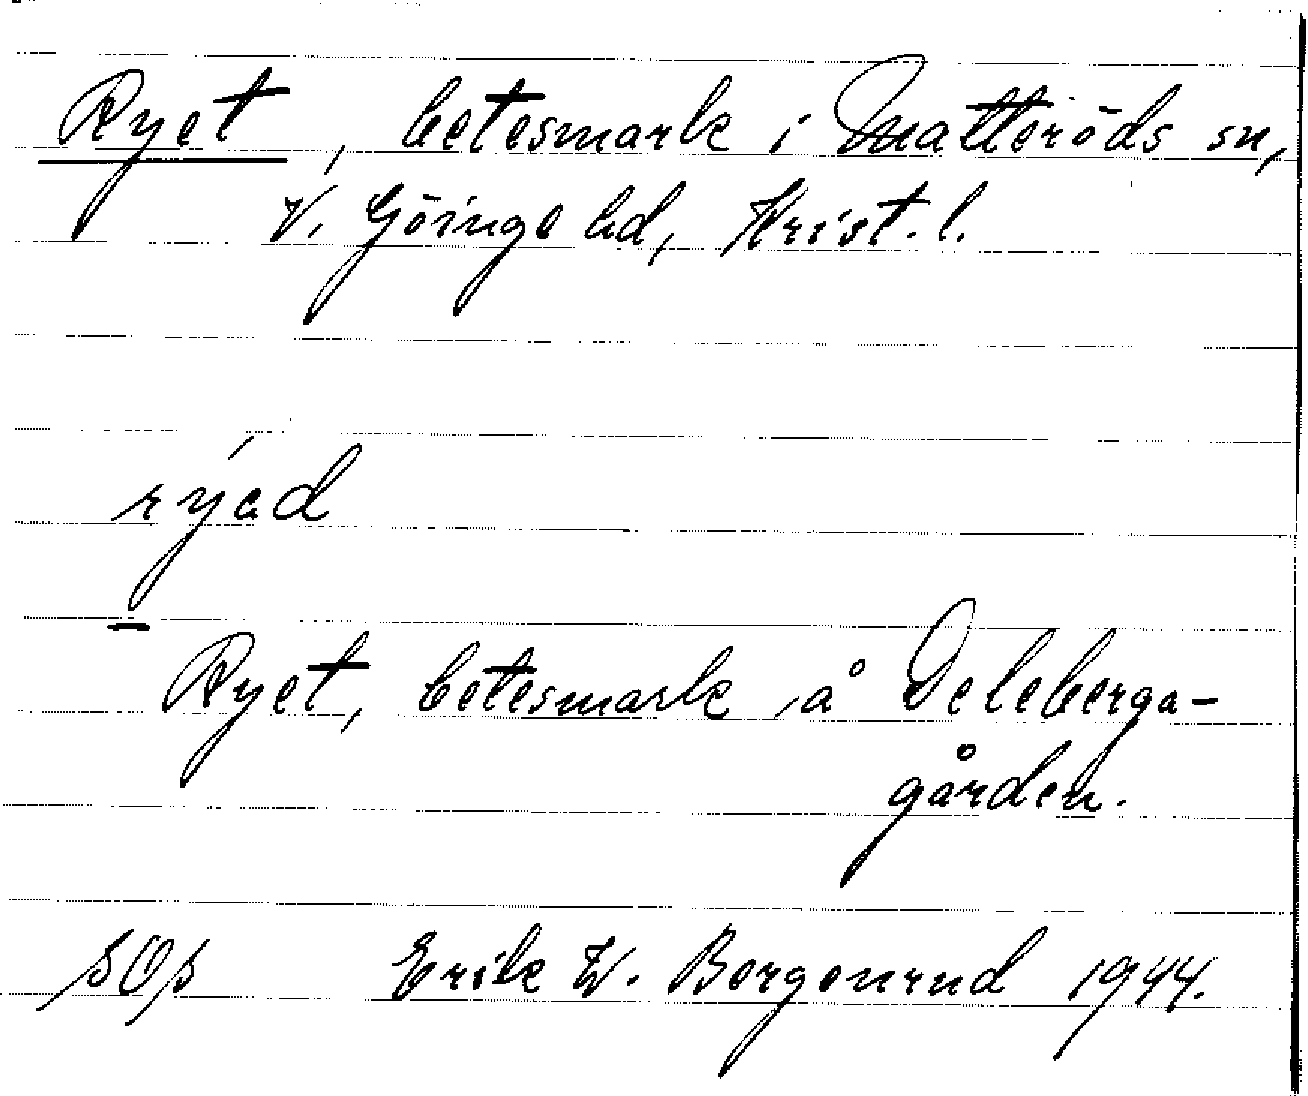 Ryet, betesmark i Matteröds sn,
V. Göinge hd, Krist. l.
rýəd
Ryet, betesmark å Deleberga-
gården.
Erik W. Bergenrud 1944.